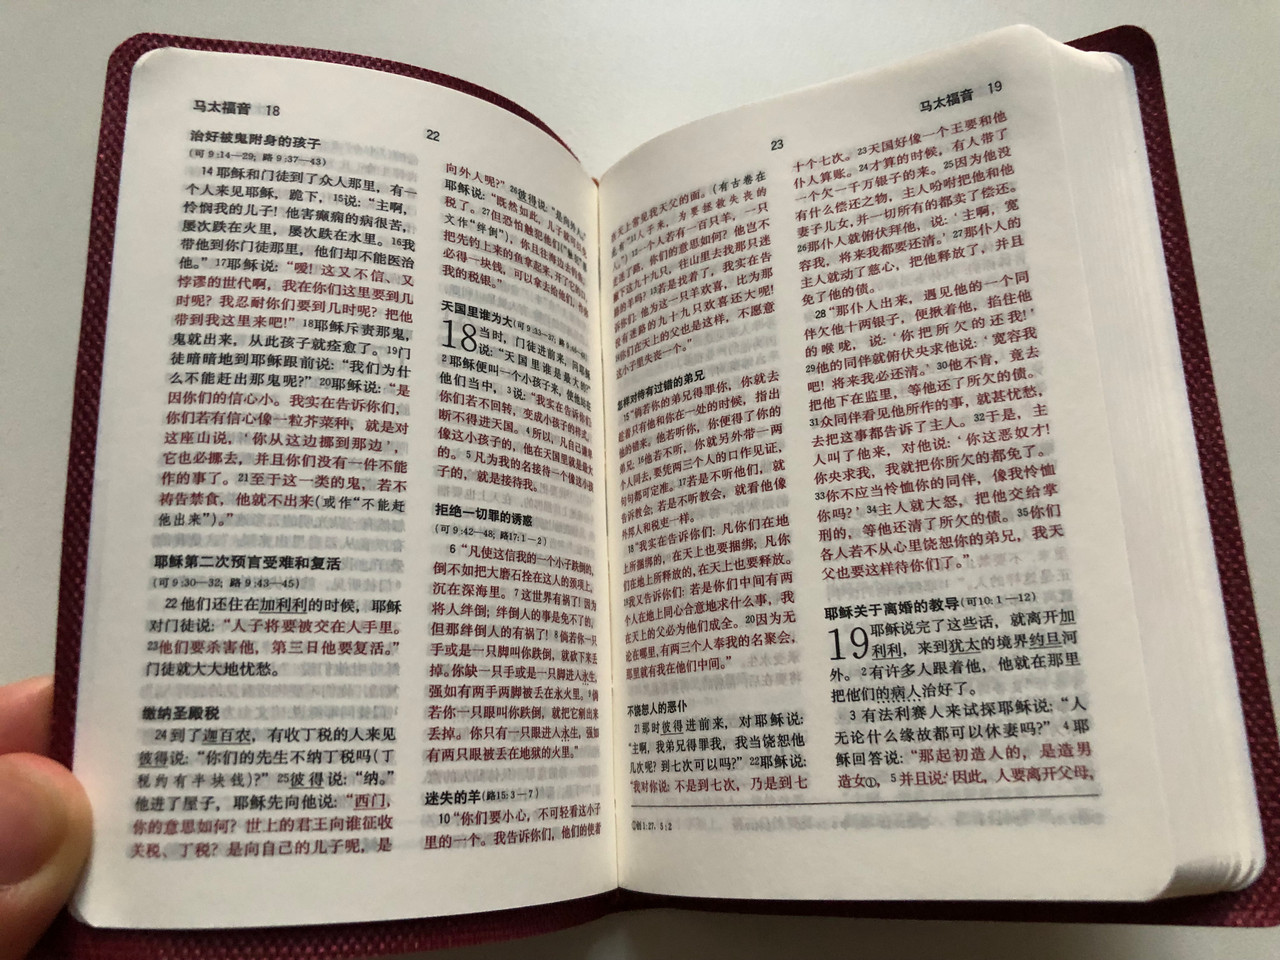 马太福音 18
22
治好被鬼附身的孩子
(可 9:14—29; 路 9:37—43)
14 耶稣和门徒到了众人那里, 有一
个人来见耶稣, 跪下, 15说: “主啊,
怜悯我的儿子! 他害癫痫的病很苦,
屡次跌在火里, 屡次跌在水里。16我
带他到你门徒那里, 他们却不能医治
他。”17耶稣说: “嗳! 这又不信、又
悖谬的世代啊, 我在你们这里要到几
时呢? 我忍耐你们要到几时呢? 把他
带到我这里来吧!” 18耶稣斥责那鬼,
鬼就出来, 从此孩子就痊愈了。19门
徒暗暗地到耶稣跟前说: “我们为什
么不能赶出那鬼呢?” 20耶稣说: “是
因你们的信心小。我实在告诉你们,
你们若有信心像一粒芥菜种, 就是对
这座山说, ‘你从这边挪到那边’,
它也必挪去, 并且你们没有一件不能
作的事了。21至于这一类的鬼, 若不
祷告禁食, 他就不出来(或作“不能赶
他出来”)。”
耶稣第二次预言受难和复活
(可 9:30—32; 路 9:43—45)
22 他们还住在加利利的时候, 耶稣
对门徒说: “人子将要被交在人手里。
23他们要杀害他, 第三日他要复活。”
门徒就大大地忧愁。
缴纳圣殿税
24 到了迦百农, 有收丁税的人来见
彼得说: “你们的先生不纳丁税吗(丁
税约有半块钱)?” 25彼得说: “纳。”
他进了屋子, 耶稣先向他说: “西门,
你的意思如何? 世上的君王向谁征收
关税、丁税? 是向自己的儿子呢, 是
向外人呢?” 26彼得说: “是向外人。”
耶稣说: “既然如此, 儿子就可以免
税了。27但恐怕触犯他们(“触犯”原
文作“绊倒”), 你且往海边去钓鱼,
把先钓上来的鱼拿起来, 开了它的口,
必得一块钱, 可以拿去给他们, 作你
我的税银。”
天国里谁为大(可9:33—37; 路9:46—48)
18 当时, 门徒进前来, 问耶稣
说: “天国里谁是最大的?”
2 耶稣便叫一个小孩子来, 使他站在
他们当中, 3 说: “我实在告诉你们,
你们若不回转, 变成小孩子的样式,
断不得进天国。4 所以, 凡自己谦卑
像这小孩子的, 他在天国里就是最大
的。5 凡为我的名接待一个像这小孩
子的, 就是接待我。
拒绝一切罪的诱惑
(可 9:42—48; 路17:1—2)
6 “凡使这信我的一个小子跌倒的,
倒不如把大磨石拴在这人的颈项上,
沉在深海里。7 这世界有祸了! 因为
将人绊倒; 绊倒人的事是免不了的,
但那绊倒人的有祸了! 8 倘若你一只
手或是一只脚叫你跌倒, 就砍下来丢
掉。你缺一只手或是一只脚进入永生,
强如有两手两脚被丢在永火里。9 倘
若你一只眼叫你跌倒, 就把它剜出来
丢掉。你只有一只眼进入永生, 强如
有两只眼被丢在地狱的火里。”
迷失的羊(路15:3—7)
10 “你们要小心, 不可轻看这小子
里的一个。我告诉你们, 他们的使者
马太福音 19
23
在天上常见我天父的面。(有古卷在
11人子来, 为要拯救失丧的
12一个人若有一百只羊, 一只
走迷了路, 你们的意思如何? 他岂不
撇下这九十九只, 往山里去找那只迷
路的羊吗? 13若是找着了, 我实在告
诉你们: 他为这一只羊欢喜, 比为那
没有迷路的九十九只欢喜还大呢!
14你们在天上的父也是这样, 不愿意
这小子里失丧一个。”
怎样对待有过错的弟兄
15 “倘若你的弟兄得罪你, 你就去
趁着只有他和你在一处的时候, 指出
他的错来。他若听你, 你便得了你的
弟兄; 16他若不听, 你就另外带一两
个人同去, 要凭两三个人的口作见证,
句句都可定准。17若是不听他们, 就
告诉教会; 若是不听教会, 就看他像
外邦人和税吏一样。
18 “我实在告诉你们: 凡你们在地
上所捆绑的, 在天上也要捆绑; 凡你
们在地上所释放的, 在天上也要释放。
19我又告诉你们: 若是你们中间有两
个人在地上同心合意地求什么事, 我
在天上的父必为他们成全。20因为无
论在哪里, 有两三个人奉我的名聚会,
那里就有我在他们中间。”
不饶恕人的恶仆
21 那时彼得进前来, 对耶稣说:
“主啊, 我弟兄得罪我, 我当饶恕他
几次呢? 到七次可以吗?” 22耶稣说:
“我对你说: 不是到七次, 乃是到七
十个七次。23天国好像一个王要和他
仆人算账。24才算的时候, 有人带了
一个欠一千万银子的来。25因为他没
有什么偿还之物, 主人吩咐把他和他
妻子儿女, 并一切所有的都卖了偿还。
26那仆人就俯伏拜他, 说: ‘主啊, 宽
容我, 将来我都要还清。’ 27那仆人的
主人就动了慈心, 把他释放了, 并且
免了他的债。
28 “那仆人出来, 遇见他的一个同
伴欠他十两银子, 便揪着他, 掐住他
的喉咙, 说: ‘你把所欠的还我!’
29他的同伴就俯伏央求他说: ‘宽容我
吧! 将来我必还清。’ 30他不肯, 竟去
把他下在监里, 等他还了所欠的债。
31众同伴看见他所作的事, 就甚忧愁,
去把这事都告诉了主人。32于是, 主
人叫了他来, 对他说: ‘你这恶奴才!
你央求我, 我就把你所欠的都免了。
33你不应当怜恤你的同伴, 像我怜恤
你吗?’ 34主人就大怒, 把他交给掌
刑的, 等他还清了所欠的债。35你们
各人若不从心里饶恕你的弟兄, 我天
父也要这样待你们了。”
耶稣关于离婚的教导(可10:1—12)
19 耶稣说完了这些话, 就离开加
利利, 来到犹太的境界约旦河
外。2 有许多人跟着他, 他就在那里
把他们的病人治好了。
3 有法利赛人来试探耶稣说: “人
无论什么缘故都可以休妻吗?” 4 耶
稣回答说: “那起初造人的, 是造男
造女①, 5 并且说: ‘因此, 人要离开父母,
①创1:27, 5:2